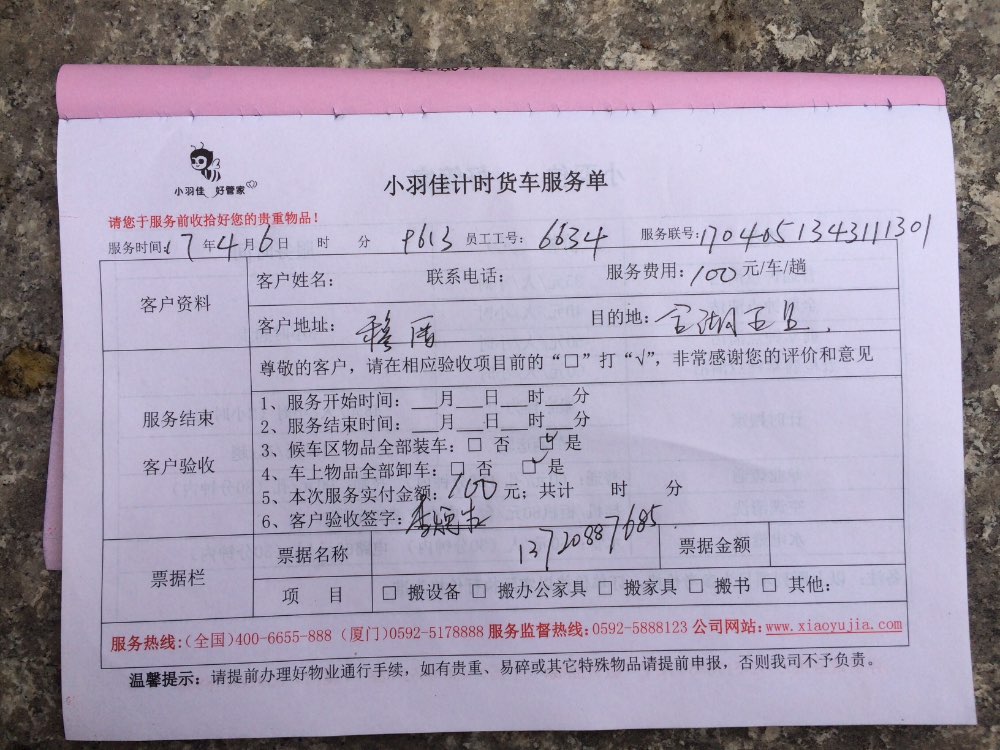 小羽佳 好管家
小羽佳计时货车服务单
请您于服务前收拾好您的贵重物品!
服务时间:17年4月6日 时 分 9613 员工工号: 6634 服务联号:1704051343111301
客户资料
客户姓名: 联系电话: 服务费用: 100 元/车/趟
客户地址: 穆厝 目的地: 金湖五里
尊敬的客户，请在相应验收项目前的“□”打“√”，非常感谢您的评价和意见
服务结束
客户验收
1、服务开始时间: ___月___日___时___分
2、服务结束时间: ___月___日___时___分
3、候车区物品全部装车: □ 否 ☑ 是
4、车上物品全部卸车: □ 否 ☑ 是
5、本次服务实付金额: 100 元; 共计 时 分
6、客户验收签字:
13720887685
票据栏
票据名称 票据金额
项 目 □ 搬设备 □ 搬办公家具 □ 搬家具 □ 搬书 □ 其他:
服务热线:(全国)400-6655-888 (厦门)0592-5178888 服务监督热线:0592-5888123 公司网站:www.xiaoyujia.com
温馨提示: 请提前办理好物业通行手续，如有贵重、易碎或其它特殊物品请提前申报，否则我司不予负责。